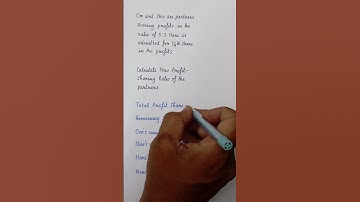 Om and Shiv are partners
sharing profits in the
ratio of 5:3. Hans is
admitted for 3/4th share
in the profits
Calculate New Profit-
Sharing Ratio of the
partners
Total Profit Share
Remaining
Om's
Shiv's
Hans
New